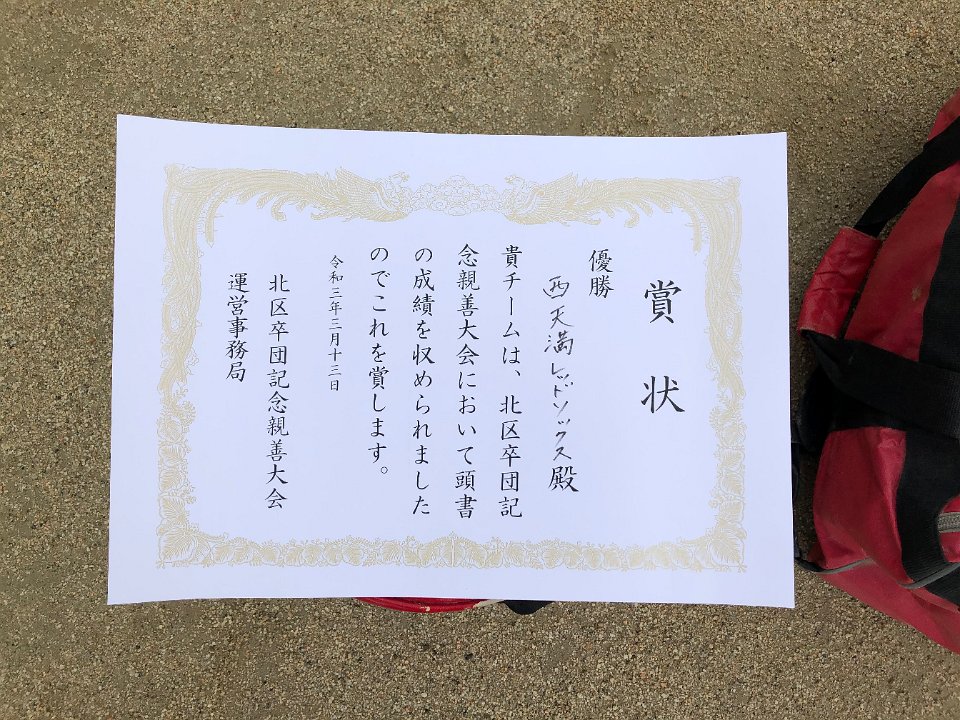 賞状
優勝
西天満レッドソックス殿
貴チームは、北区卒団記
念親善大会において頭書
の成績を収められました
のでこれを賞します。
令和三年三月十三日
北区卒団記念親善大会
運営事務局